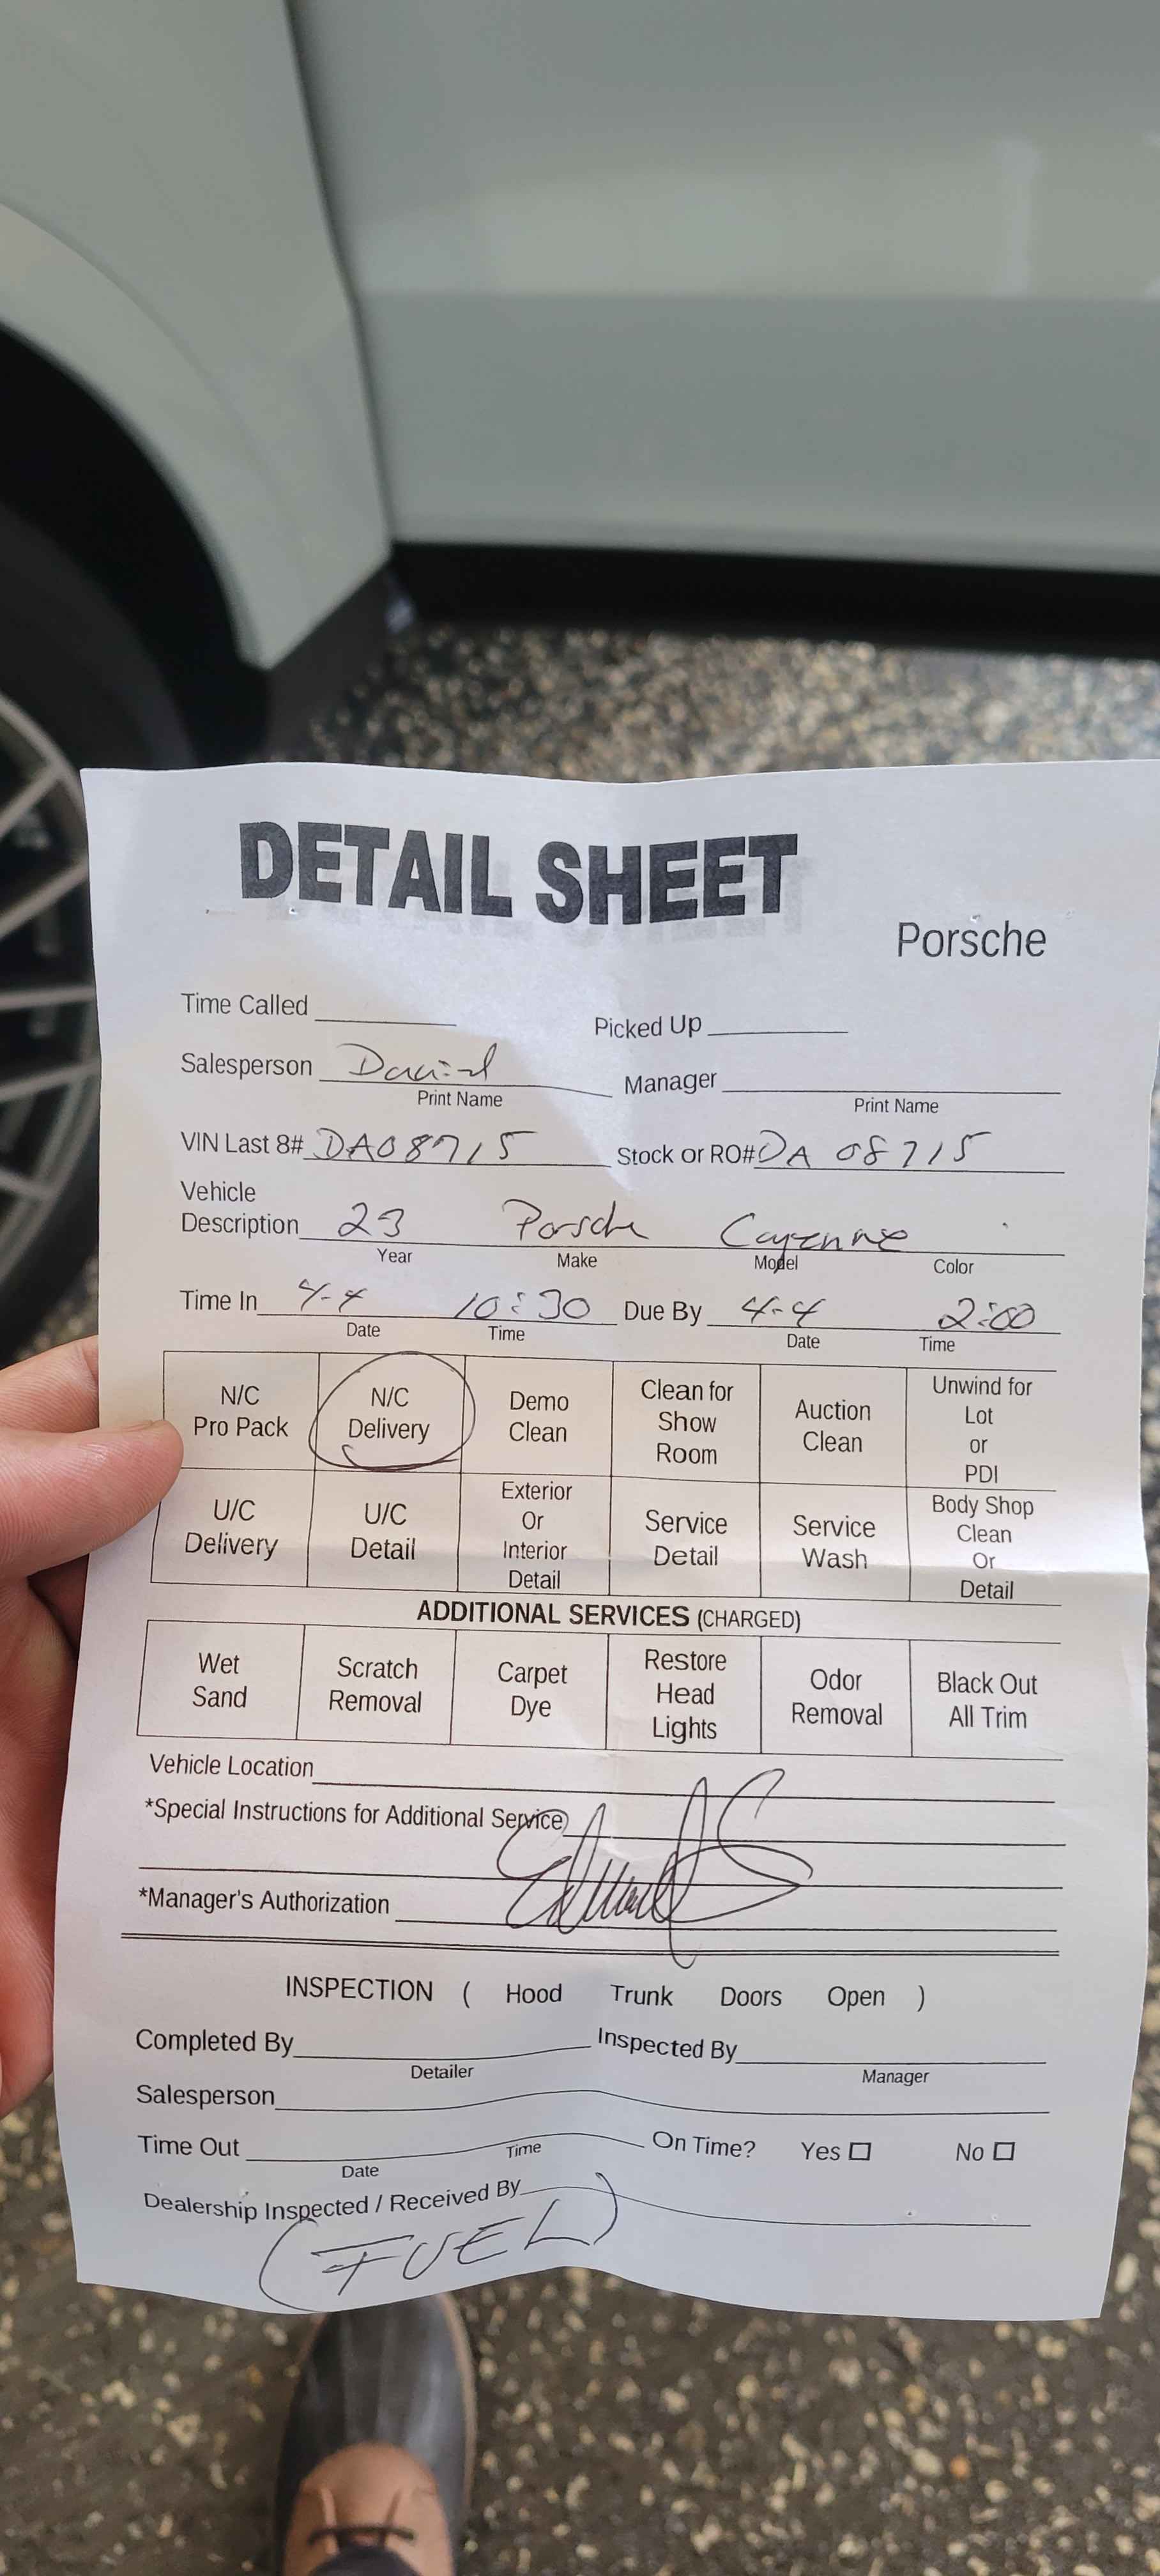 DETAIL SHEET
Porsche
Time Called
Picked Up
Salesperson Daniel
Manager
Print Name
Print Name
VIN Last 8# DA08715 Stock or RO# DA 08715
Vehicle
Description 23 Porsche Cayenne
Year Make Model Color
Time In 4-4 10:30 Due By 4-4 2:00
Date Time Date Time
N/C Pro Pack N/C Delivery Demo Clean Clean for Show Room Auction Clean Unwind for Lot or PDI
U/C Delivery U/C Detail Exterior Or Interior Detail Service Detail Service Wash Body Shop Clean Or Detail
ADDITIONAL SERVICES (CHARGED)
Wet Sand Scratch Removal Carpet Dye Restore Head Lights Odor Removal Black Out All Trim
Vehicle Location
*Special Instructions for Additional Service
*Manager's Authorization
INSPECTION ( Hood Trunk Doors Open )
Completed By Inspected By
Detailer Manager
Salesperson
Time Out On Time? Yes No
Date Time
Dealership Inspected / Received By
(FUEL)